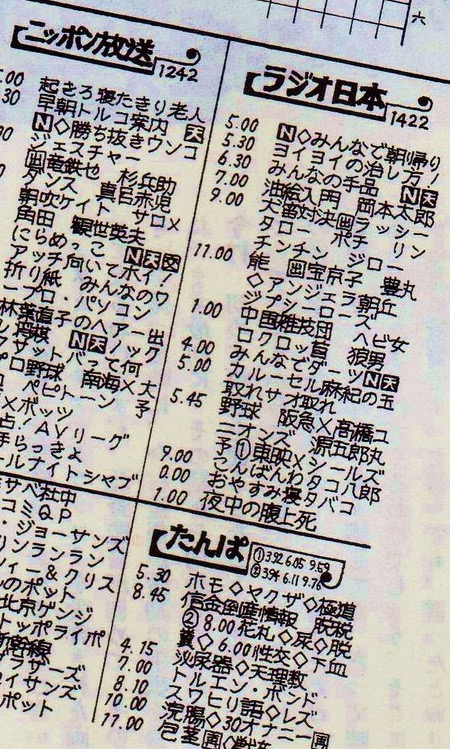 六
ニッポン放送
1242
起きろ寝たきり老人
早朝トルコ案内 天
N◇勝ち抜きウンコ
ジェスチャー
画竜鉄也 杉兵助
ダンス 真目赤児
朝吹ケイト サロメ
角田 観世英夫
にらめっこ N天交
アッチ向いてホイ!
折り紙・みんなのワ
ープロ・パソコン
林葉直子のヘアー出
N天
プロ野球 南海×大
ペピトーン 予
×ボッツ
点!AVリーグ
手らっきょ
ールナイトシャブ
ラジオ日本
1422
5.00 N◇みんなで朝帰り
5.30 ヨイヨイの治し方
6.30 みんなの手品 N天
7.00 油絵入門 岡本太郎
9.00 犬番対決画ラッシー
タロー ポチ リン
チンチン ジロー
11.00 能 画宝京子 豊丸
◇アンジェラ朝丘
ジプシーローズ
1.00 中国雑技団 ヘビ女
クロック首 狼男
4.00 みんなでダーツN天
5.00 カルーセル麻紀の玉
取れサオ取れ
5.45 野球 阪急×高橋ユ
ニオンズ 源五郎丸
予①東映×シールズ
9.00 こんばんわタコ八郎
0.00 おやすみ寝タバコ
1.00 夜中の腹上死
サベ社中
コミQP
・ジョーサンズ
リンランラン
ィー&クリス
のポット
北京ゲンジ
トッポライポ
新幹線
ブラザーズ
イサンズ
ポット
たんぱ
①3.92 6.05 9.59
②3.94 6.11 9.76
5.30 ホモ◇ヤクザ◇極道
8.45 信金倒産情報 脱税
②8.00花札◇尿◇脱
糞◇6.00性交◇下血
4.15 泌尿器◇天理教
7.00 トルエン・ボンド
8.10 スワヒリ語◇レズ
10.00 浣腸◇30オナニー画
11.00